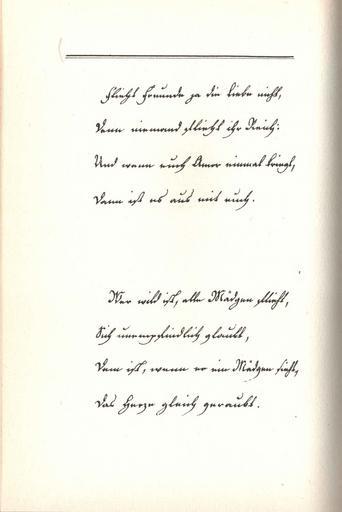 Flieht Freunde ja die Liebe nicht,
Denn niemand flieht ihr Reich:
Und wenn euch Amor einmal kriegt,
Dann ist es aus mit euch.
Wer wild ist, alle Mädgen flieht,
Sich unempfindlich glaubt,
Dem ist, wenn er ein Mädgen sieht,
Das Herze gleich geraubt.